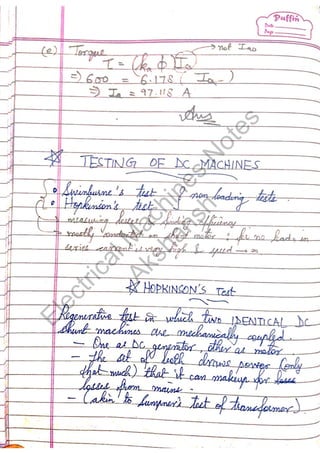 Puffin
Date
Page
(e) Torque → not Iao
τ = (ka φ) Ia
⇒ 600 = 6.178 ( Ia )
⇒ Ia = 97.118 A
Ans
TESTING OF DC MACHINES
• Swinburne's test } non loading tests.
• Hopkinson's test
- measuring losses & finding efficiency
- mostly conducted on shunt motor ; for no load in
series current is very high & speed → ∞
HOPKINSON'S Test
Regenerative test in which two IDENTICAL DC
shunt machines are mechanically coupled.
- One as DC generator other as motor
- The set of both draws power (only
that much) that it can makeup for losses
losses from mains.
- (akin to Sumpner's test of transformer).
Electrical Machines Notes